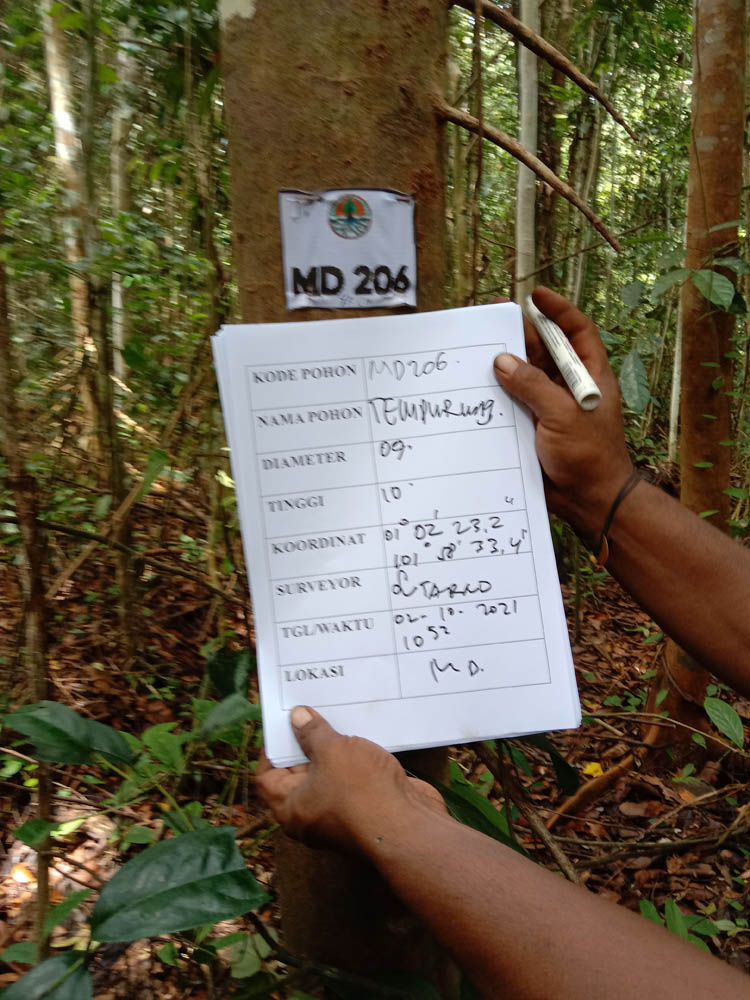 MD 206
KODE POHON MD206.
NAMA POHON TEMPURUNG.
DIAMETER 09.
TINGGI 10
KOORDINAT 01° 02' 23,2"
101° 58' 33,4"
SURVEYOR SUTARNO
TGL/WAKTU 02-10-2021
10 52
LOKASI MD.